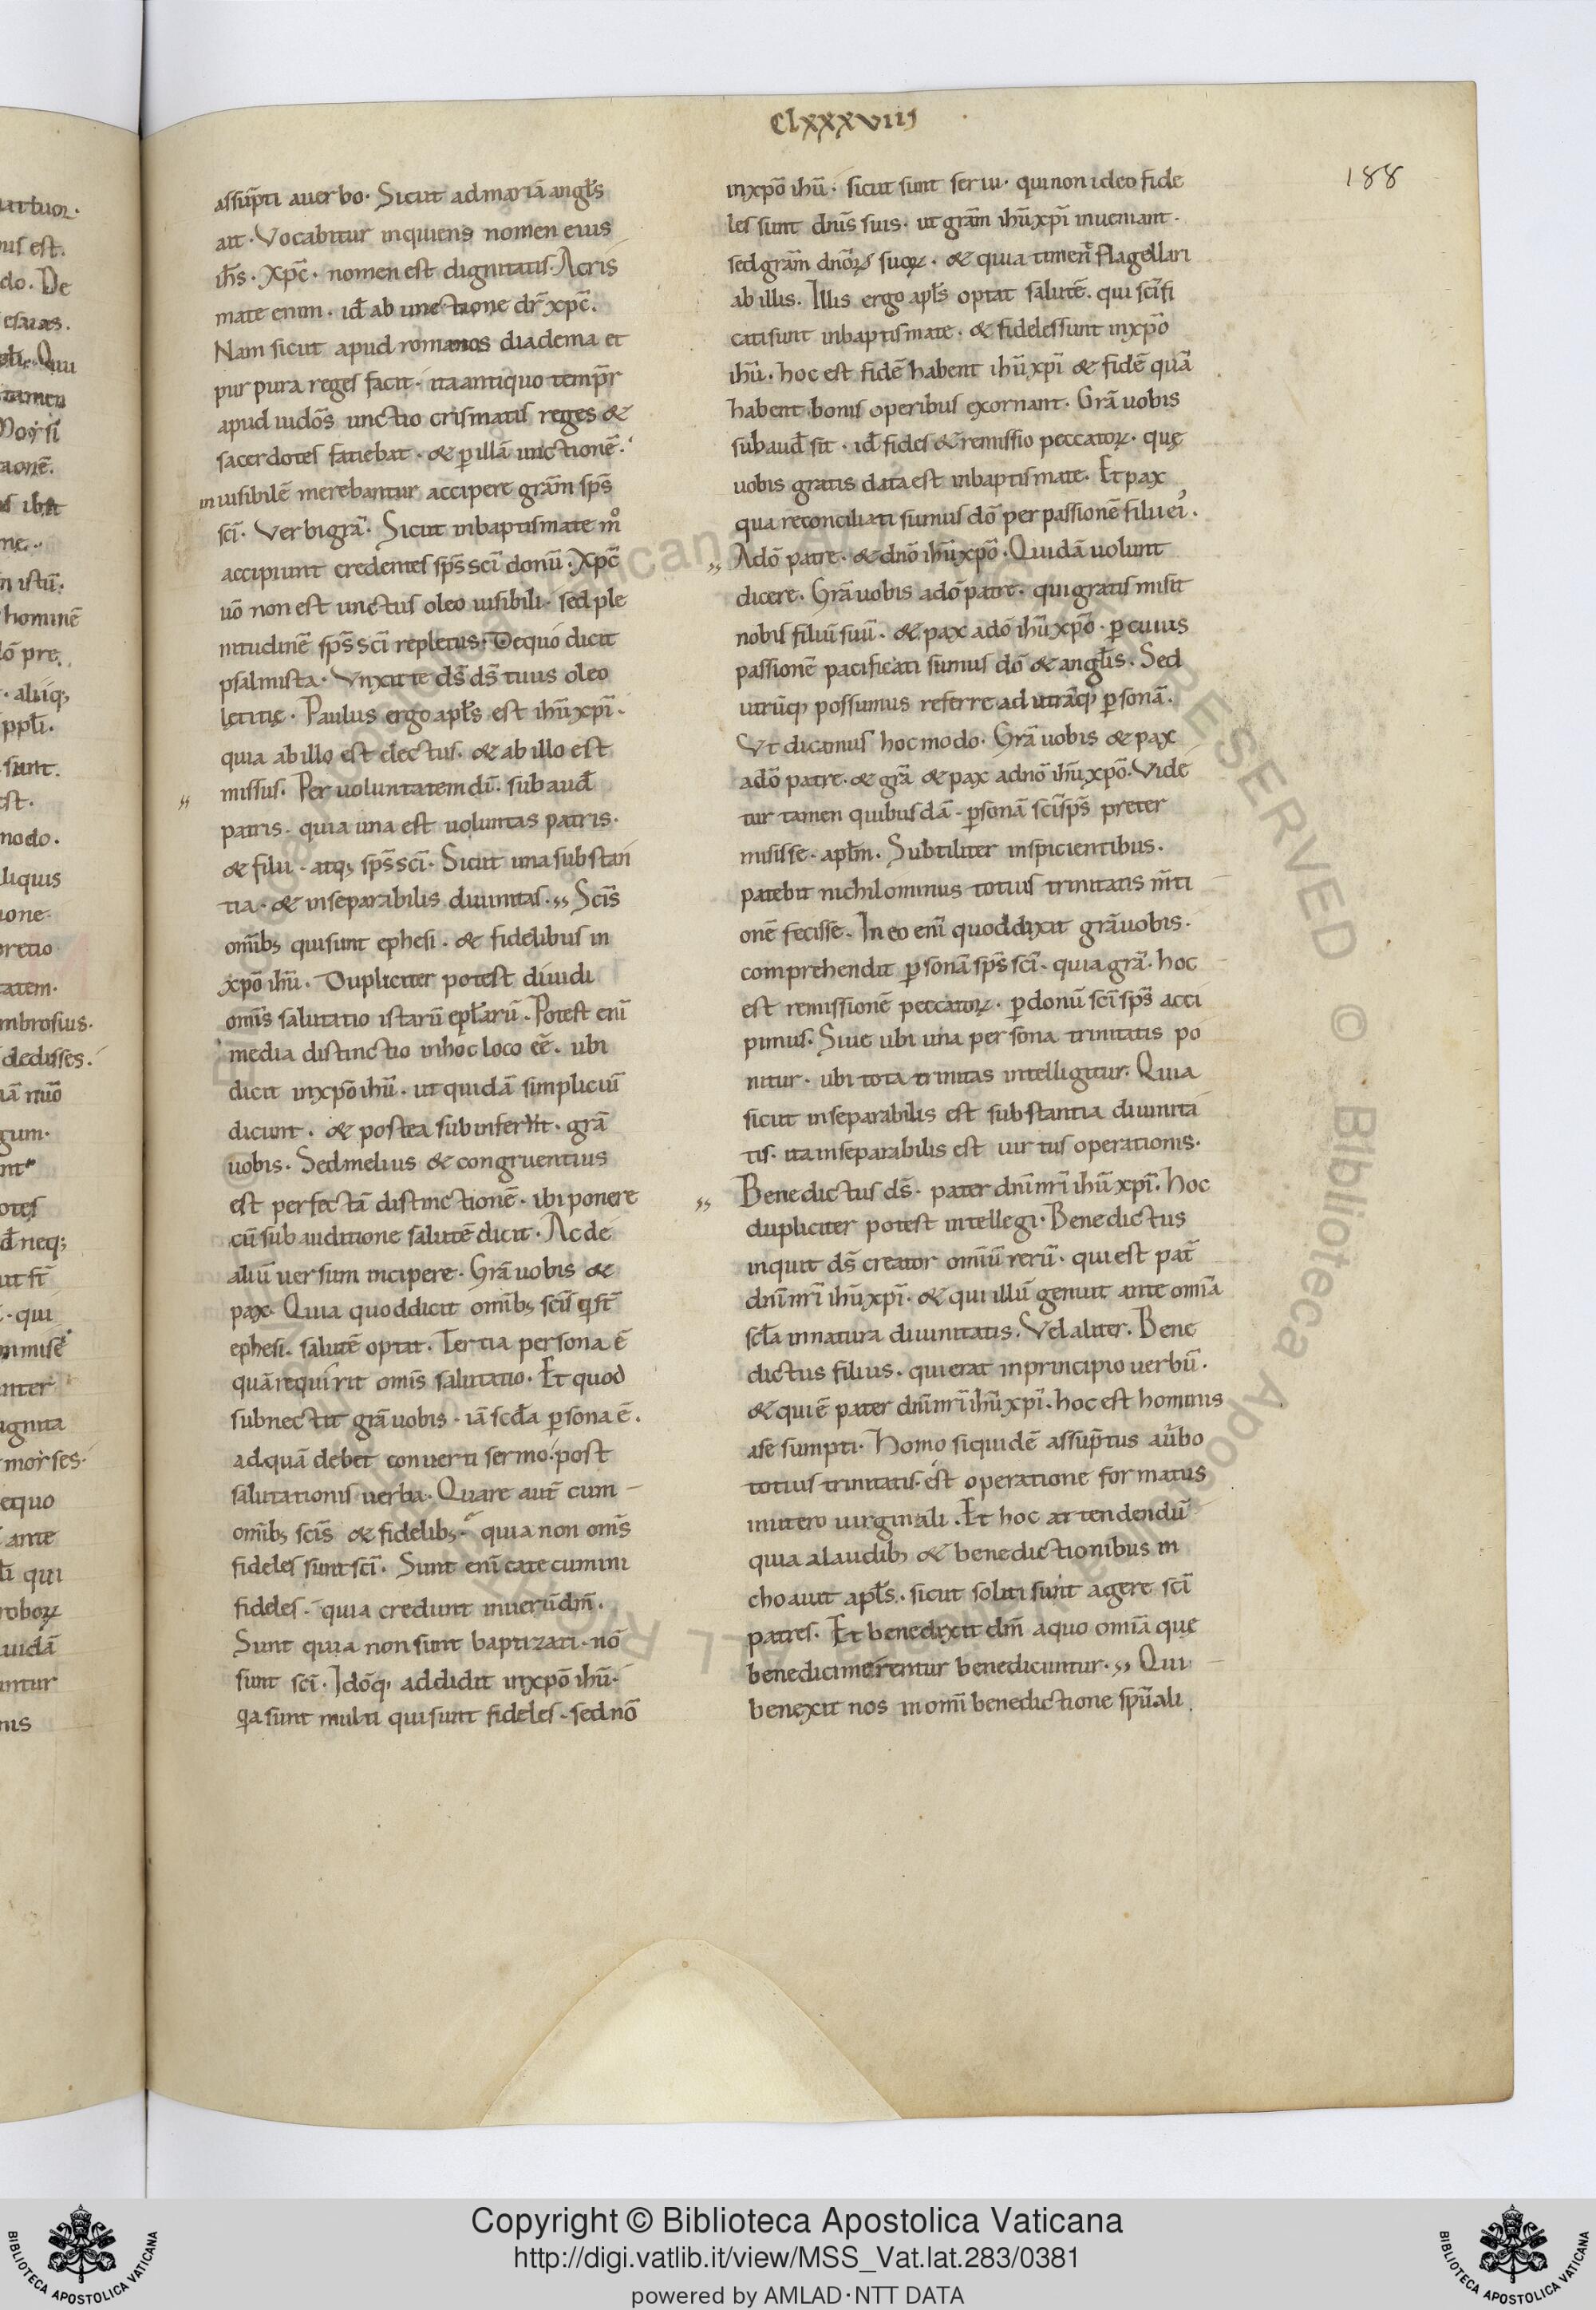 Clxxxviiij
188
assūpti auerbo· Sicut admariā angłs
ait· Vocabitur inquiens nomen eius
ihs̄· Xpc̄· nomen est dignitatis· Acris
mate enim· id̄ ab unctione dr̄ xpc̄.
Nam sicut apud romanos diadema et
purpura reges facit· ita antiquo temp̄r
apud iudōs unctio crismatis reges &
sacerdotes fatiebat· & ꝑ illā unctionē·
inuisibilē merebantur accipere grām sps̄
scī· Verbigrā· Sicut inbaptismate m̊
accipiunt credentes sps̄ scī donū· Xpc̄
uō non est unctus oleo uisibili· sed ple
nitudinē sps̄ scī repletus· Dequo dicit
psalmista· Vnxit te ds̄ ds̄ tuus oleo
lętitię· Paulus ergo apłs est ihū xpī·
quia ab illo est electus· & ab illo est
missus· Per uoluntatem dī· subaud̄
patris· quia una est uoluntas patris·
& filii· atq; sps̄ scī· Sicut una substan
tia· & inseparabilis diuinitas·,, Scīs
omīb; quisunt ephesi· & fidelibus in
xpō ihū· Dupliciter potest diuidi
omīs salutatio istarū epłarū· Potest enī
media distinctio inhoc loco eē· ubi
dicit inxpō ihū· ut quidā simpliciū
dicunt· & postea subinfernt· grā
uobis· Sedmelius & congruentius
est perfectā distinctionē· ibi ponere
cū subauditione salutē dicit· Acde
aliū uersum incipere· Grā uobis &
pax· Quia quoddicit omīb; scīs q̄ st̄
ephesi· salutē optat· Tertia persona ē
quā requirit omīs salutatio· Et quod
subnectit grā uobis· iā scd̄a ꝑsona ē·
adquā debet conuerti sermo· post
salutationis uerba· Quare aut̄ cum
omīb; scīs & fidelib;· quia non omīs
fideles sunt scī· Sunt enī catecumini
fideles· quia credunt inuerū dm̄·
Sunt quia non sunt baptizati· nō
sunt scī· Idōq; addidit inxpō ihū·
qa sunt multi qui sunt fideles· sed nō
inxpō ihū· sicut sunt serui· quinon ideo fide
les sunt dnīs suis· ut grām ihū xpī inueniant·
sed grām dnōrꝫ suorꝫ· & quia timent flagellari
ab illis· Illis ergo apłs optat salutē· qui scīfi
catisunt inbaptismate· & fidelessunt inxpō
ihū· hoc est fidē habent ihū xpī & fidē quā
habent bonis operibus exornant· Grā uobis
subaud̄ sit· id̄ fides & remissio peccatorꝫ· quę
uobis gratis data est inbaptismate· Et pax
qua reconciliati sumus dō per passionē filii ei᾿·
,, Adō patre· & dnō ihū xpō· Quidā uolunt
dicere· Grā uobis adō patre· qui gratis misit
nobis filiū suū· & pax adō ihū xpō· ꝑ cuius
passionē pacificati sumus dō & angłis· Sed
utrūq; possumus referre ad utrāq; ꝑsonā·
Vt dicamus hocmodo· Grā uobis & pax
adō patre· & grā & pax adnō ihū xpō· Vide
tur tamen quibusdā· ꝑsonā scī sps̄ preter
misisse· apłm· Subtiliter inspicientibus·
patebit nichilominus totius trinitatis m̄ti
onē fecisse· In eo enī quoddixit grā uobis·
comprehendit ꝑsonā sps̄ scī· quia grā· hoc
est remissionē peccatorꝫ· ꝑ donū scī sps̄ acci
pimus· Siue ubi una persona trinitatis po
nitur· ubi tota trinitas intelligitur· Quia
sicut inseparabilis est substantia diuinita
tis· ita inseparabilis est uirtus operationis·
,, Benedictus ds̄· pater dnī nr̄i ihū xpī· hoc
dupliciter potest intellegi· Benedictus
inquit ds̄ creator omīū rerū· qui est pat̄
dnī nr̄i ihū xpī· & qui illū genuit ante omīa
scła innatura diuinitatis· Vel aliter· Bene
dictus filius· quierat inprincipio uerbū·
& qui ē pater dnī nr̄i ihū xpī· hoc est hominis
ase sumpti· Homo siquidē assūptus au̅bo
totius trinitatis· est operatione formatus
inutero uirginali· Et hoc attendendū
quia alaudib; & benedictionibus in
choauit apłs· sicut soliti sunt agere scī
patres· Et benedixit dm̄ aquo omīa quę
benedicimerentur benedicuntur·,, Qui
benexit nos inomī benedictione spūali
Copyright © Biblioteca Apostolica Vaticana
http://digi.vatlib.it/view/MSS_Vat.lat.283/0381
powered by AMLAD·NTT DATA
BIBLIOTECA APOSTOLICA VATICANA
BIBLIOTECA APOSTOLICA VATICANA